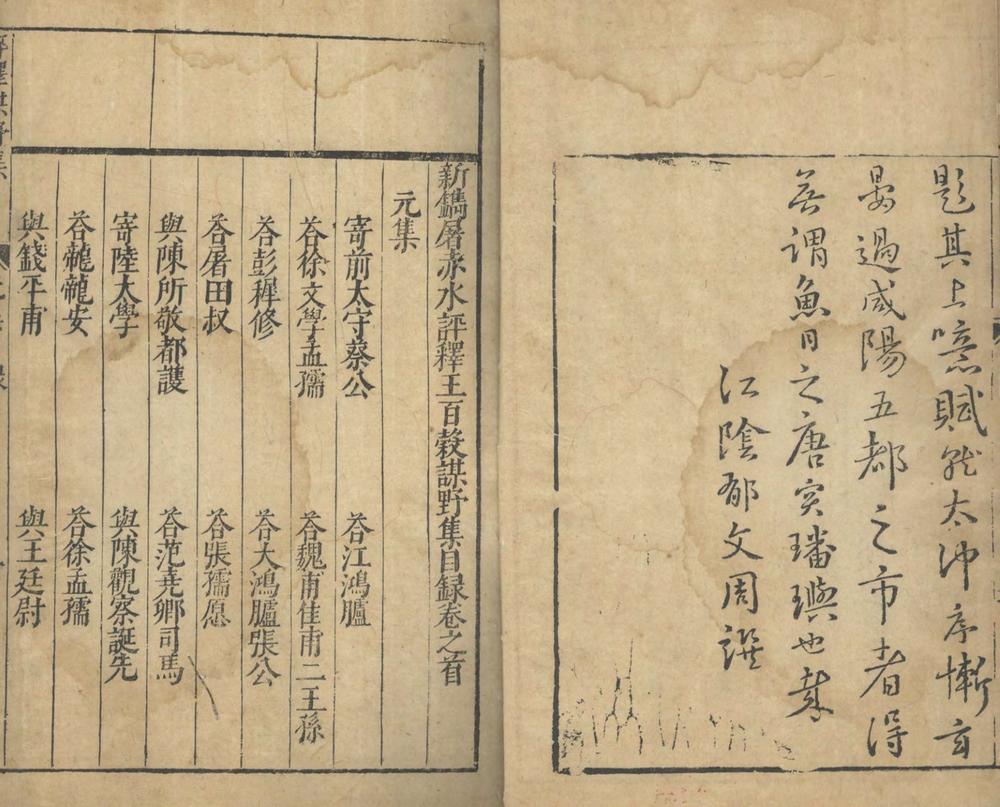 題其上噫賦就太沖序慚玄
晏過咸陽五都之市者得
無謂魚目之唐突璠璵也耶
江陰郁文周譔
新鐫屠赤水評釋王百穀謀野集目録卷之首
元集
寄前太守蔡公
荅江鴻臚
荅徐文學孟孺
荅魏甫佳甫二王孫
荅彭穉修
荅大鴻臚張公
荅屠田叔
荅張孺愿
與陳所敬都護
荅范堯卿司馬
寄陸大學
與陳觀察誕先
荅龍龍安
荅徐孟孺
與錢平甫
與王廷尉